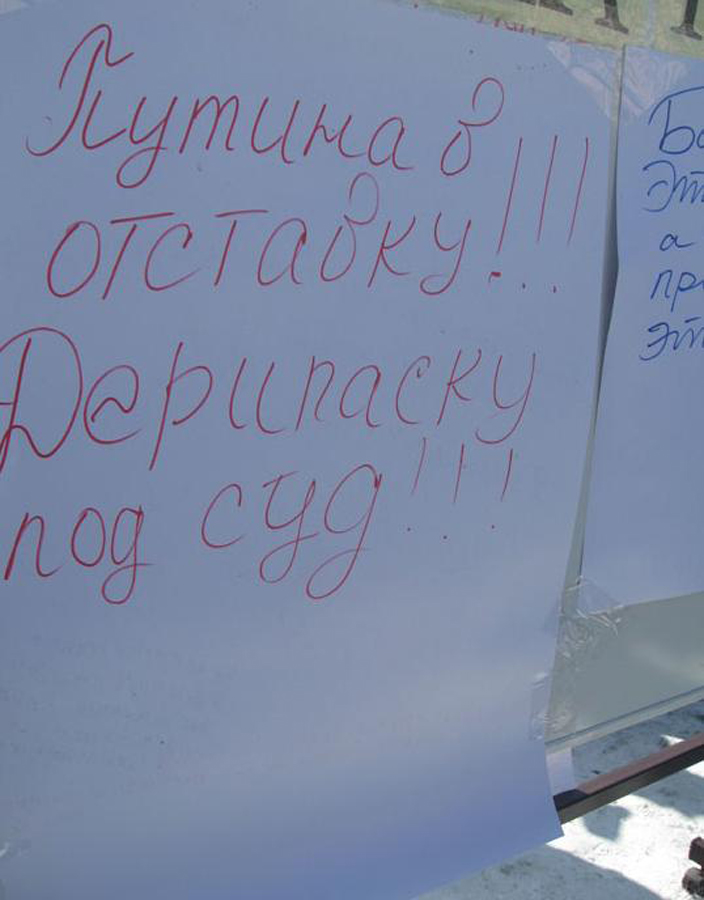 Путина в
отставку!!!
Дерипаску
под суд!!!
а